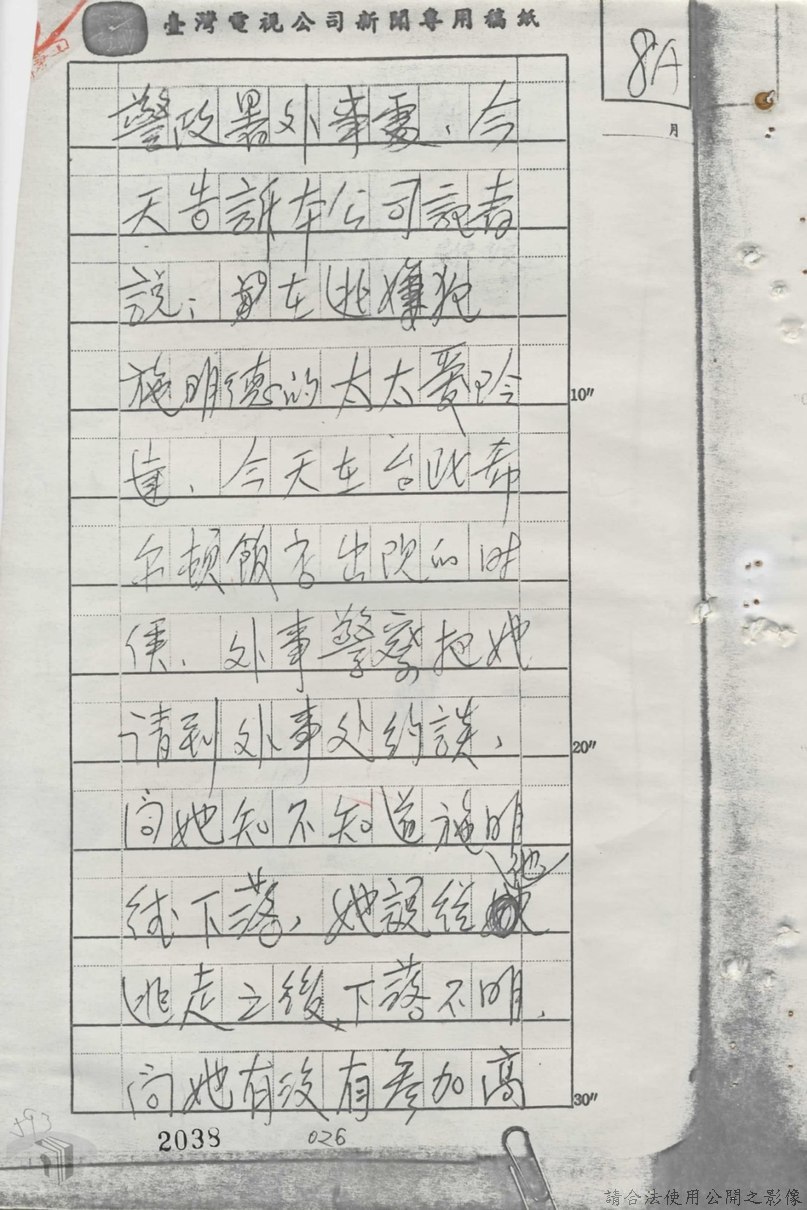 臺灣電視公司新聞專用稿紙
8A
月
警政署外事處、今
天告訴本公司記者
說：在逃嫌犯
施明德的太太愛玲
達、今天在台北希
尔頓飯店出現的時
候、外事警察把她
请到外事处約談、
问她知不知道施明
德下落、她說從他
逃走之後、下落不明、
问她有没有參加高
10"
20"
30"
2038
026
593
請合法使用公開之影像